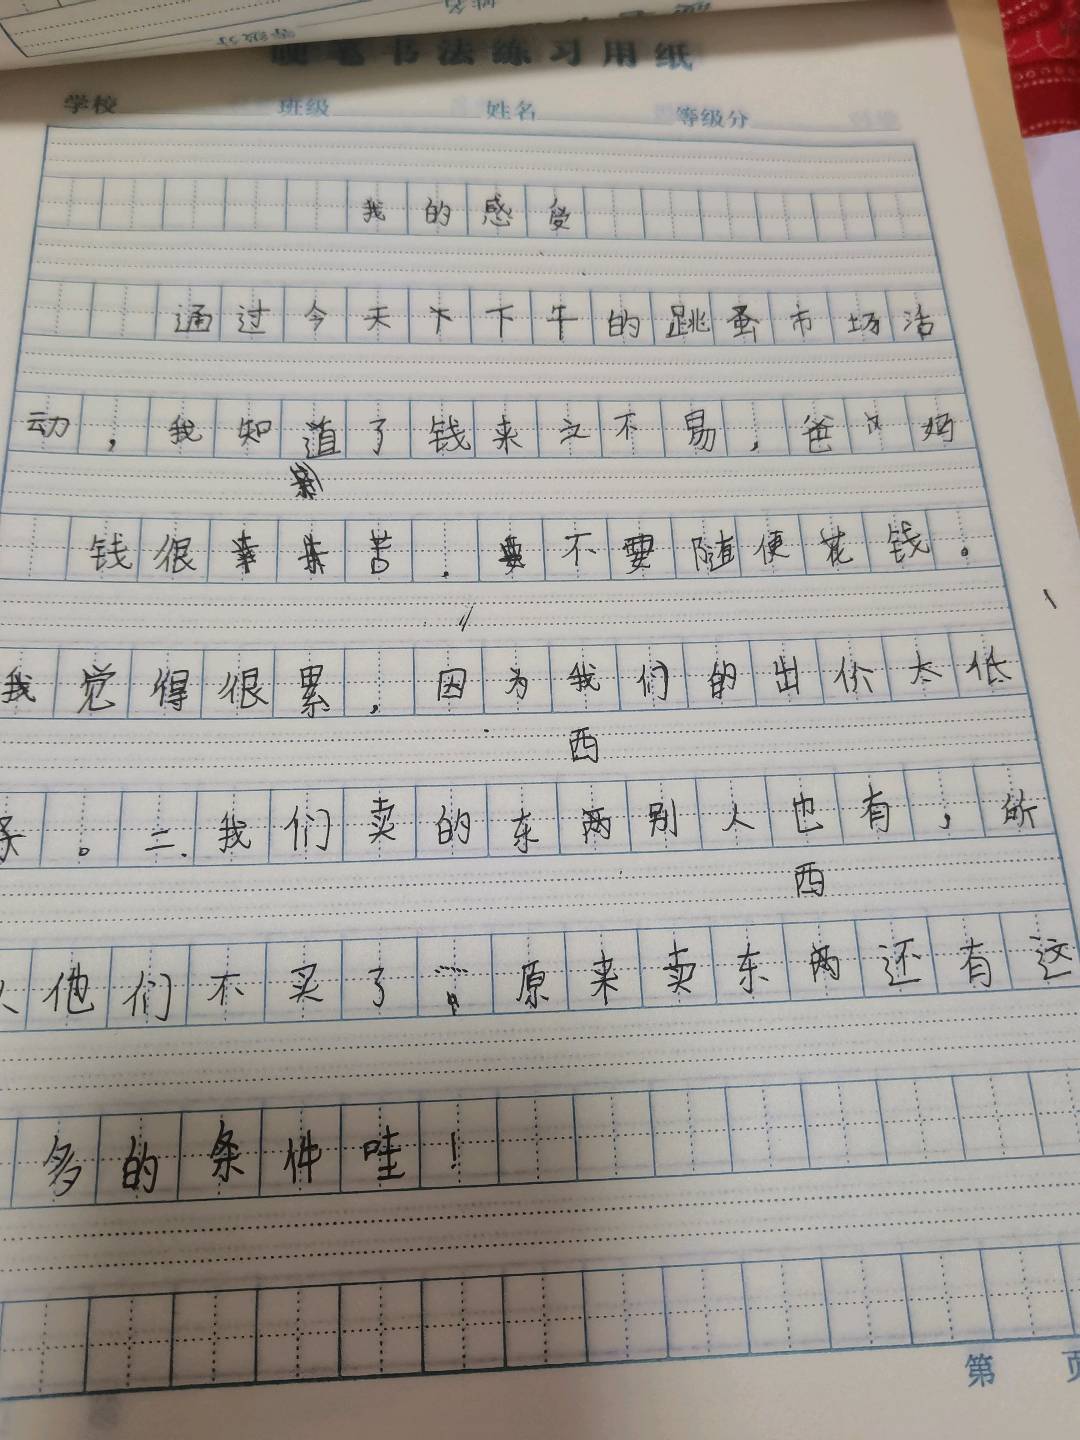 硬笔书法练习用纸
学校 班级 姓名 等级分
我的感受
通过今天下下午的跳蚤市场活
动，我知道了钱来之不易，爸爸妈
钱很辛苦．不要随便花钱。
我觉得很累，因为我们的出价太低
。二.我们卖的东两别人也有，所
西
他们不买了。原来卖东两还有这
西
多的条件哇！
第 页